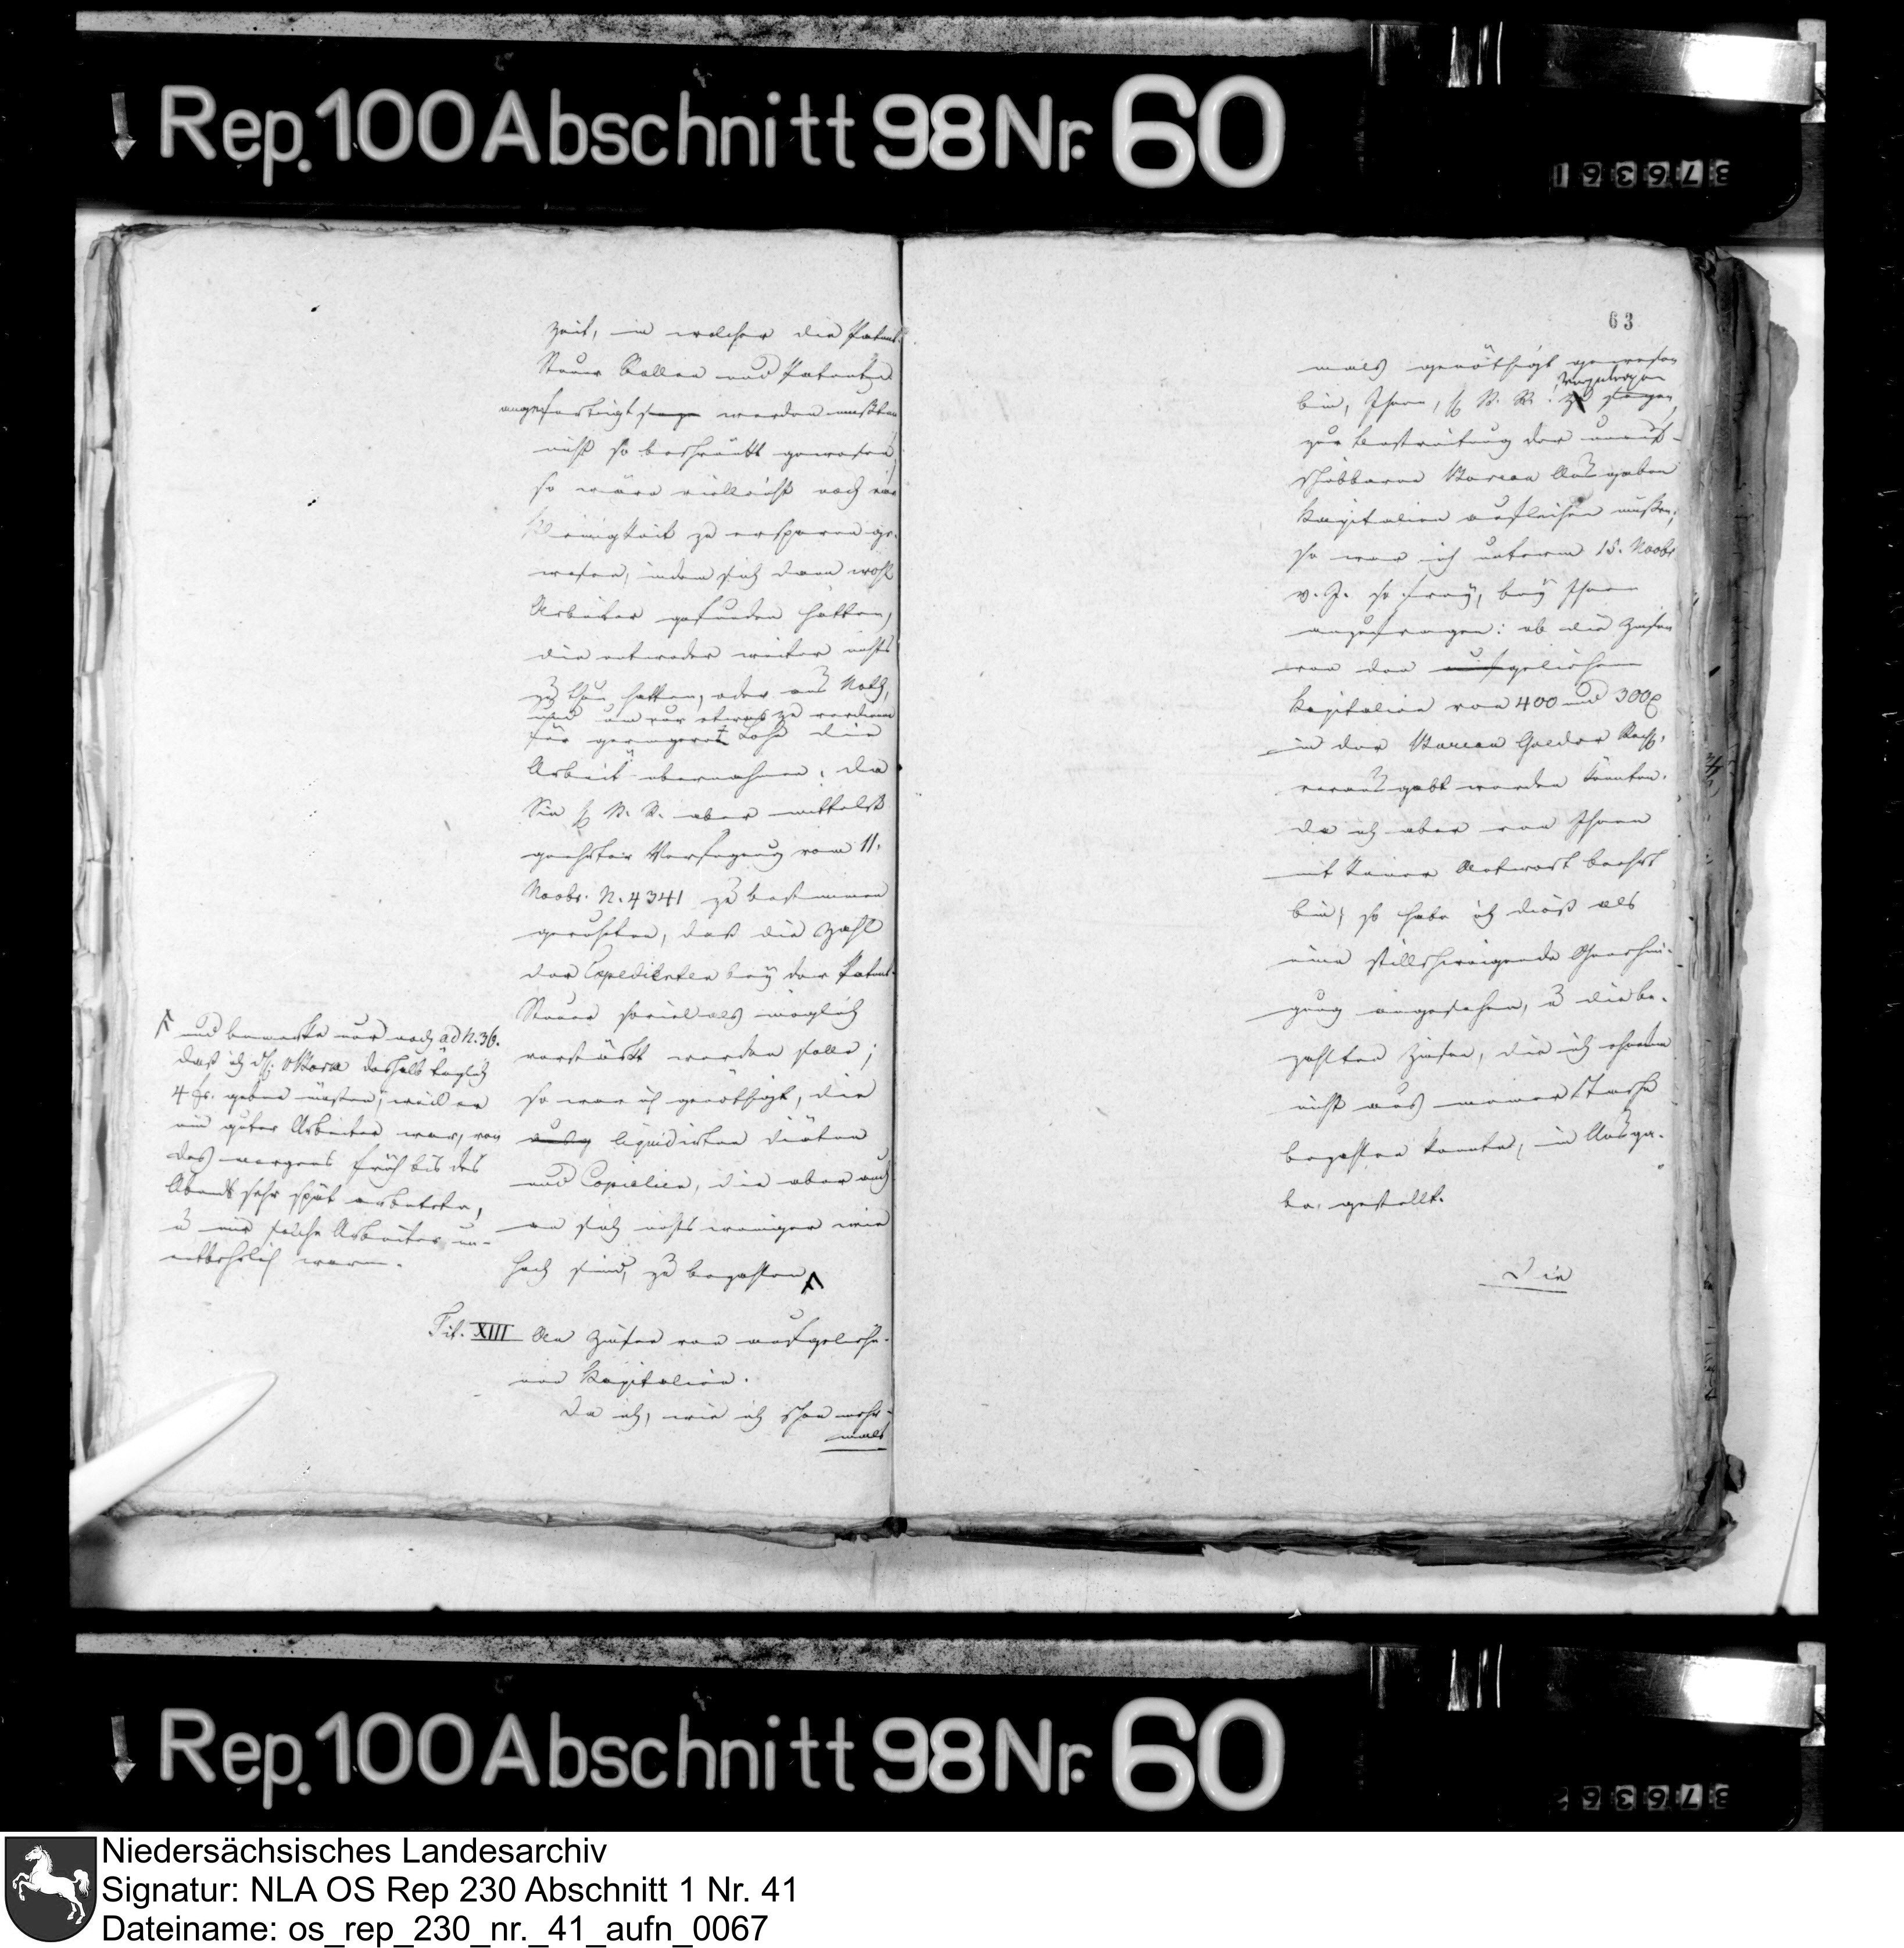 Rep. 100 Abschnitt 98 Nr. 60
376361
Zeit, in welcher die Patent-
Steuer Rollen und Patenten
angefertigt werden mußten
nicht so beschränkt gewesen,
so wäre vielleicht noch eine
Wenigkeit zu ersparen ge-
wesen, indem sich dann wohl
Arbeiter gefunden hätten,
die entweder weiter nichts
zu thun hatten, oder aus Noth,
und um nur etwas zu verdienen
für geringeres Lohn die
Arbeit übernahmen. Da
Sie H. P. P. aber mittelst
geehrter Verfügung vom 11.
Novbr. N. 4341 zu bestimmen
geruhten, daß die Zahl
der Expedienten bey der Patent-
Steuer soviel als möglich
verstärkt werden solle;
so war ich genöthigt, die
liquidirten Diäten
und Copialien, die aber auch
an sich nichts weniger wie
hoch sind, zu bezahlen
und bemerke nur noch ad N. 36.
daß ich deshalb täglich
4 Fr. geben müssen, weil er
ein guter Arbeiter war, von
des morgens früh bis des
Abends sehr spät arbeitete,
u mir solche Arbeiter un-
entbehrlich waren.
Tit. XIII An Zinsen von aufgelieh-
nen Kapitalien.
Da ich, wie ich schon mehr-
mals
63
mals genöthigt gewesen
bin, Ihnen, H. P. P. vorzutragen
zu sagen,
zur Bestreitung der unauf-
schiebbaren Bureau Ausgaben
Kapitalien aufleihen müßen;
so war ich unterm 15. Novbr
v. J. so frey, bey Ihnen
anzufragen: ob die Zinsen
von den aufgeliehenen
Kapitalien von 400 und 300
in der Bureau Gelder Rech.
verausgabt werden könnten.
Da ich aber von Ihnen
mit keiner Antwort beehrt
bin, so habe ich dieß als
eine stillschweigende Genehmi-
gung angesehen, u die be-
zahlten Zinsen, die ich ohnehin
nicht aus meiner Tasche
bezahlen konnte, in Ausga-
be gestellt.
Die
Rep. 100 Abschnitt 98 Nr. 60
376362
Niedersächsisches Landesarchiv
Signatur: NLA OS Rep 230 Abschnitt 1 Nr. 41
Dateiname: os_rep_230_nr._41_aufn_0067